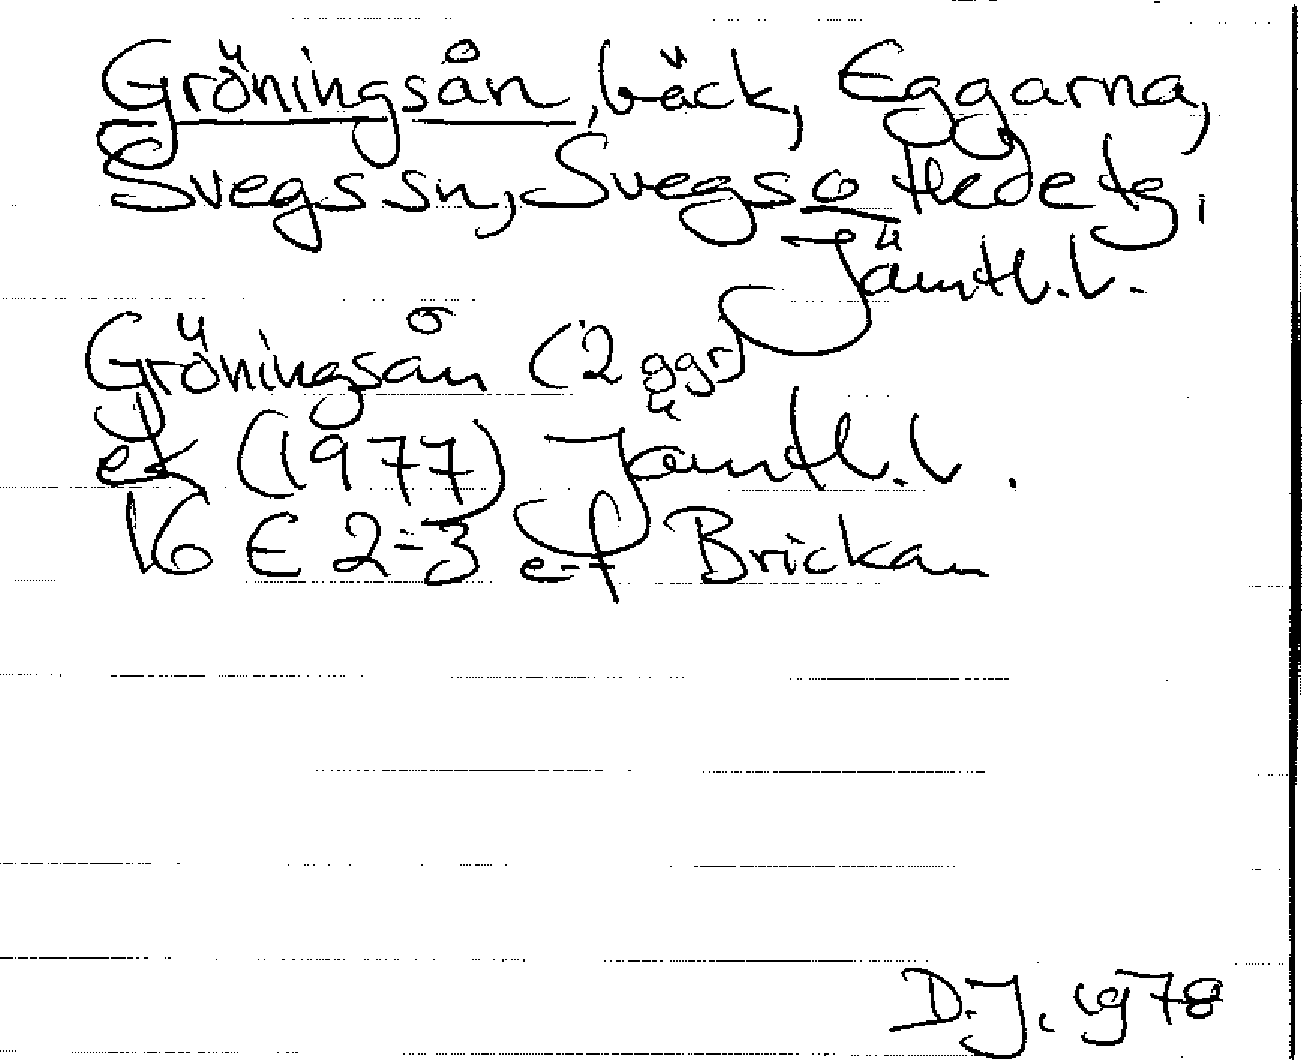 Gröningsån, bäck, Eggarna,
Svegs sn, Svegs o Hede tg,
Jämtl. l.
Gröningsån (2 ggr)
ek (1977) Jämtl. l.
16 E 2-3 e-f Brickan
D.J. 1978